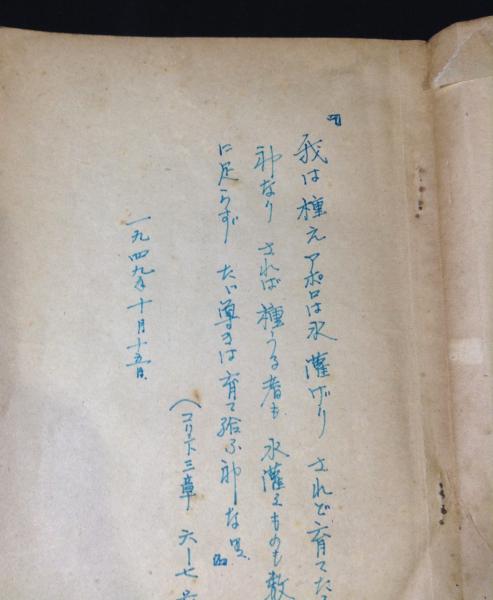 「我は種えアポロは水灌げり されど育てた
神なり されば種うる者も 水灌くものも数
に足らず たゞ尊きは育て給ふ神なり」
(コリ下三章 六ー七
一九四九年十月十五日